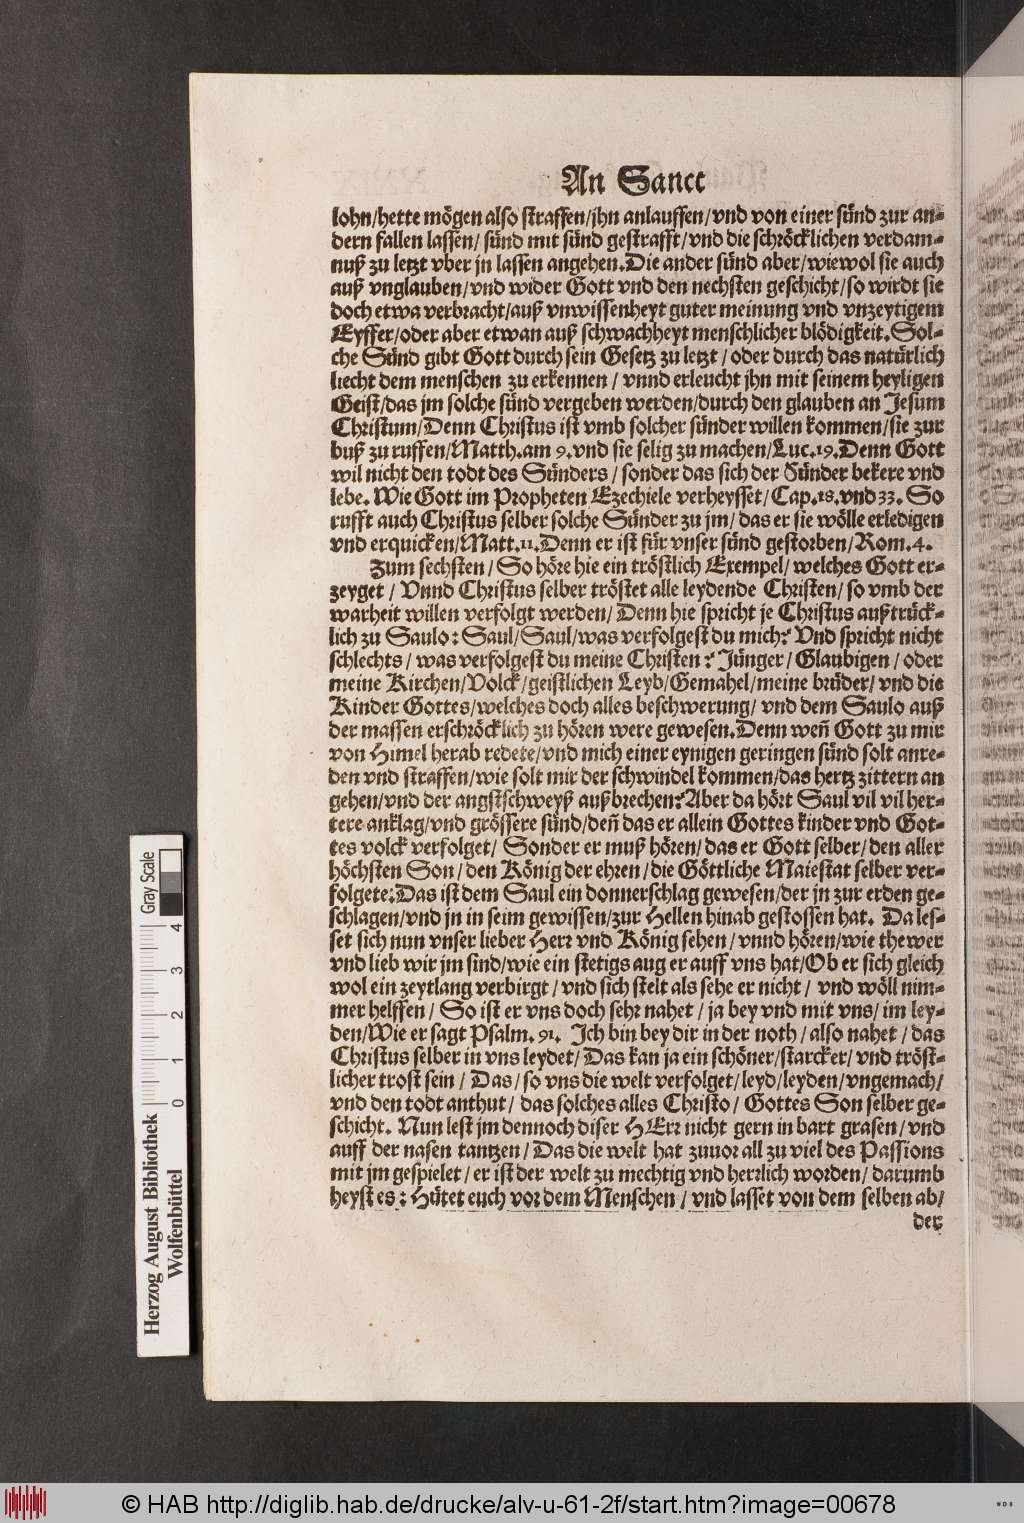 An Sanct
lohn/hette mögen also straffen/jhn anlauffen/vnd von einer sünd zur an-
dern fallen lassen/ sünd mit sünd gestrafft/vnd die schröcklichen verdam-
nuß zu letzt vber jn lassen angehen.Die ander sünd aber/wiewol sie auch
auß vnglauben/vnd wider Gott vnd den nechsten geschicht/so wirdt sie
doch etwa verbracht/auß vnwissenheyt guter meinung vnd vnzeytigem
Eyffer/oder aber etwan auß schwachheyt menschlicher blödigkeit.Sol-
che Sünd gibt Gott durch sein Gesetz zu letzt / oder durch das natürlich
liecht dem menschen zu erkennen / vnnd erleucht jhn mit seinem heyligen
Geist/das jm solche sünd vergeben werden/durch den glauben an Jesum
Christum/Denn Christus ist vmb solcher sünder willen kommen/sie zur
buß zu ruffen/Matth.am 9.vnd sie selig zu machen/Luc.19.Denn Gott
wil nicht den todt des Sünders / sonder das sich der Sünder bekere vnd
lebe. Wie Gott im Propheten Ezechiele verheysset/Cap.18.vnd 33. So
rufft auch Christus selber solche Sünder zu jm/das er sie wölle erledigen
vnd erquicken/Matt.11.Denn er ist für vnser sünd gestorben/Rom.4.
Zum sechsten / So höre hie ein tröstlich Exempel/welches Gott er-
zeyget / Vnnd Christus selber tröstet alle leydende Christen/ so vmb der
warheit willen verfolgt werden/ Denn hie spricht je Christus außtrück-
lich zu Saulo: Saul/Saul/was verfolgest du mich? Vnd spricht nicht
schlechts / was verfolgest du meine Christen? Jünger / Glaubigen / oder
meine Kirchen/Volck/geistlichen Leyb/Gemahel/meine brüder/ vnd die
Kinder Gottes/welches doch alles beschwerung/ vnd dem Saulo auß
der massen erschröcklich zu hören were gewesen.Denn weñ Gott zu mir
von Himel herab redete/vnd mich einer eynigen geringen sünd solt anre-
den vnd straffen/wie solt mir der schwindel kommen/das hertz zittern an
gehen/vnd der angstschweyß außbrechen?Aber da hört Saul vil vil her-
tere anklag/vnd grössere sünd/deñ das er allein Gottes kinder vnd Got-
tes volck verfolget/ Sonder er muß hören/das er Gott selber/den aller
höchsten Son / den König der ehren / die Göttliche Maiestat selber ver-
folgete:Das ist dem Saul ein donnerschlag gewesen/der jn zur erden ge-
schlagen/vnd jn in seim gewissen/zur Hellen hinab gestossen hat. Da les-
set sich nun vnser lieber Herr vnd König sehen / vnnd hören/wie thewer
vnd lieb wir jm sind/wie ein stetigs aug er auff vns hat/Ob er sich gleich
wol ein zeytlang verbirgt / vnd sich stelt als sehe er nicht / vnd wöll nim-
mer helffen / So ist er vns doch sehr nahet / ja bey vnd mit vns/ im ley-
den/Wie er sagt Psalm. 91. Ich bin bey dir in der noth / also nahet / das
Christus selber in vns leydet / Das kan ja ein schöner/starcker/ vnd tröst-
licher trost sein / Das / so vns die welt verfolget/leyd/leyden/vngemach/
vnd den todt anthut / das solches alles Christo/ Gottes Son selber ge-
schicht. Nun lest jm dennoch diser HErr nicht gern in bart grasen/ vnd
auff der nasen tantzen / Das die welt hat zuuor all zu viel des Passions
mit jm gespielet / er ist der welt zu mechtig vnd herrlich worden/ darumb
heyst es: Hütet euch vor dem Menschen / vnd lasset von dem selben ab/
der
Herzog August Bibliothek
Wolfenbüttel
0 1 2 3 4
Gray Scale
© HAB http://diglib.hab.de/drucke/alv-u-61-2f/start.htm?image=00678